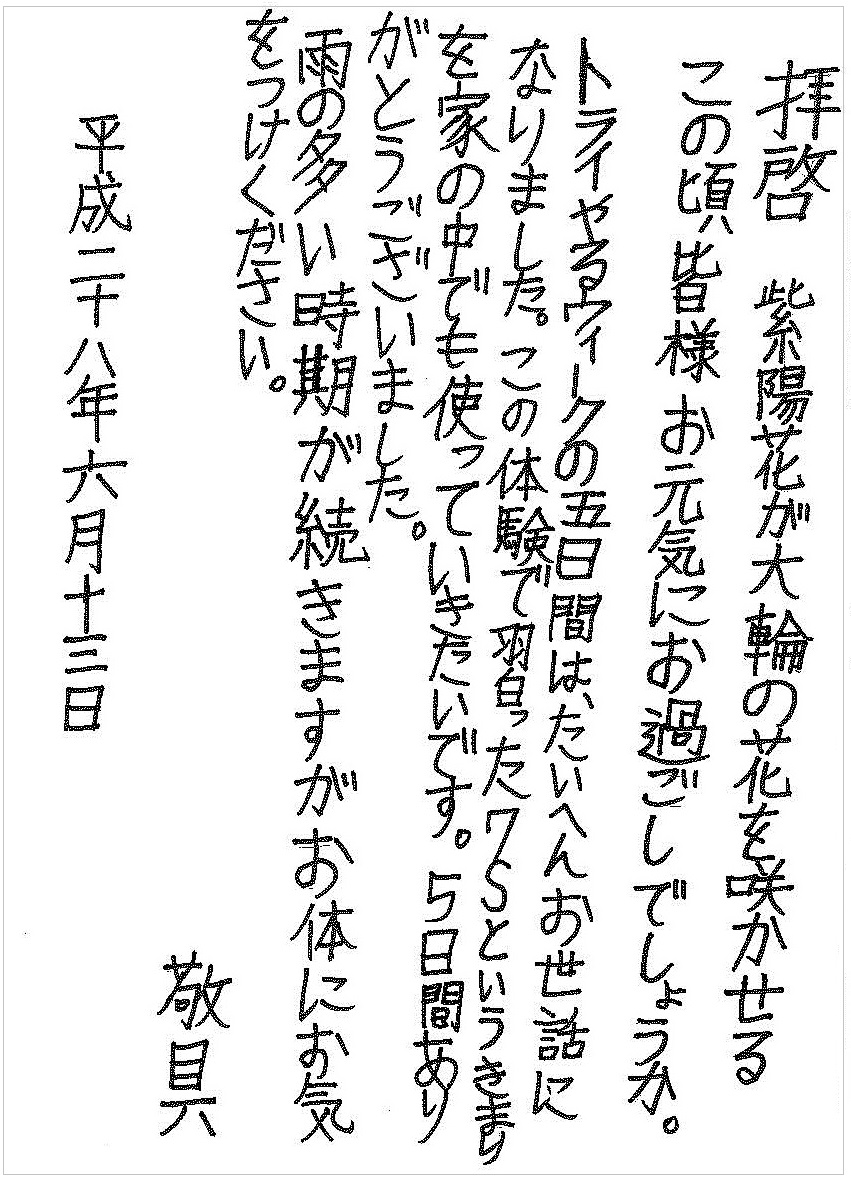 拝啓　紫陽花が大輪の花を咲かせる
この頃、皆様お元気にお過ごしでしょうか。
トライやるウィークの五日間は、たいへんお世話に
なりました。この体験で習った7Sというきまり
を家の中でも使っていきたいです。5日間あり
がとうございました。
雨の多い時期が続きますがお体にお気
をつけください。
敬具
平成二十八年六月十三日